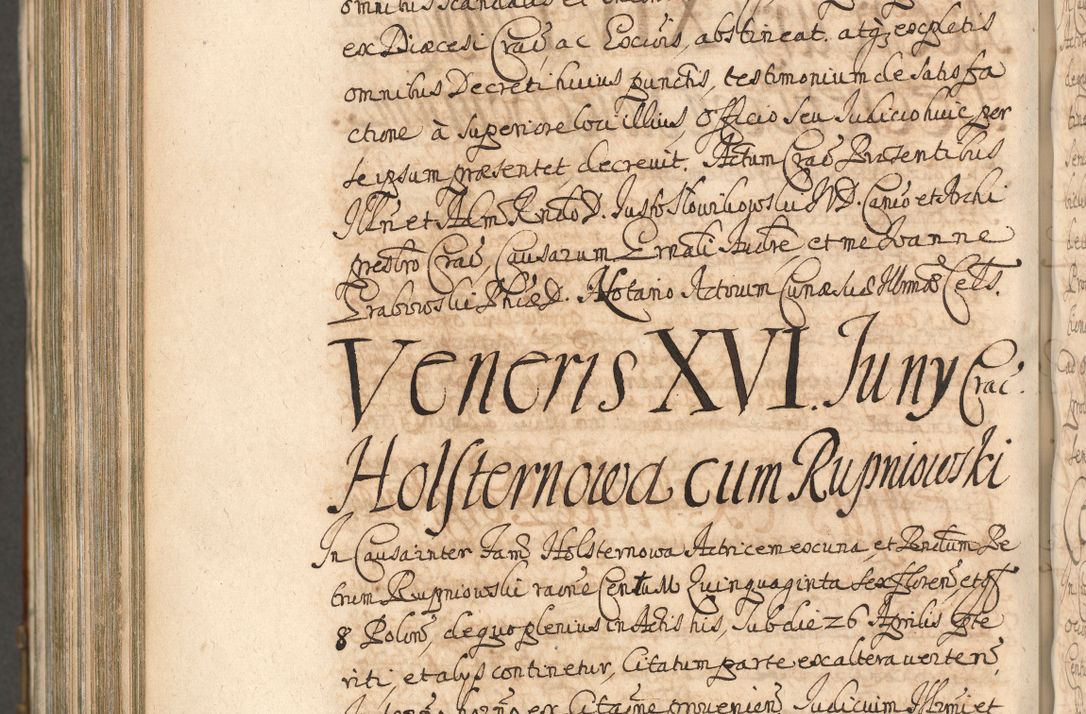 omnibus scandalis et
ex Diæcesi Crac̃ ac Locis, abstineat. atq3 expletis
omnibus Decreti huius punctis, testimonium de satisfa
ctione à superiore loci illius, Officio seu Iudicio huic per
se ipsum præsentet decrevit. Actum Crac̃ Præsentibus
Illr̃i et Adm Rndo D. Iusto Słowikowski IVD. Canco et Archi
presbro Crac̃, Causarum Grnali Audre, et me Ioanne
Grabowski Phiæ D. Notario Actorum Curiæ suæ Illmæ Cels.
Veneris XVI. Iuny Crac̃.
Holsternowa cum Rupniowski
In Causa inter Fam̃ Holsternowa Actricem ex una et Rndum Pe
trum Rupniowski raone Centum Quinquaginta sex floreñ, et gr̃
8 Poloñ, de quo plenius in Actis his, sub die 26 Aprilis pte
riti, et alys continetur, Citatum parte ex altera verteñ,
ex Citaõne provenieñ Iudicium Illrmi et